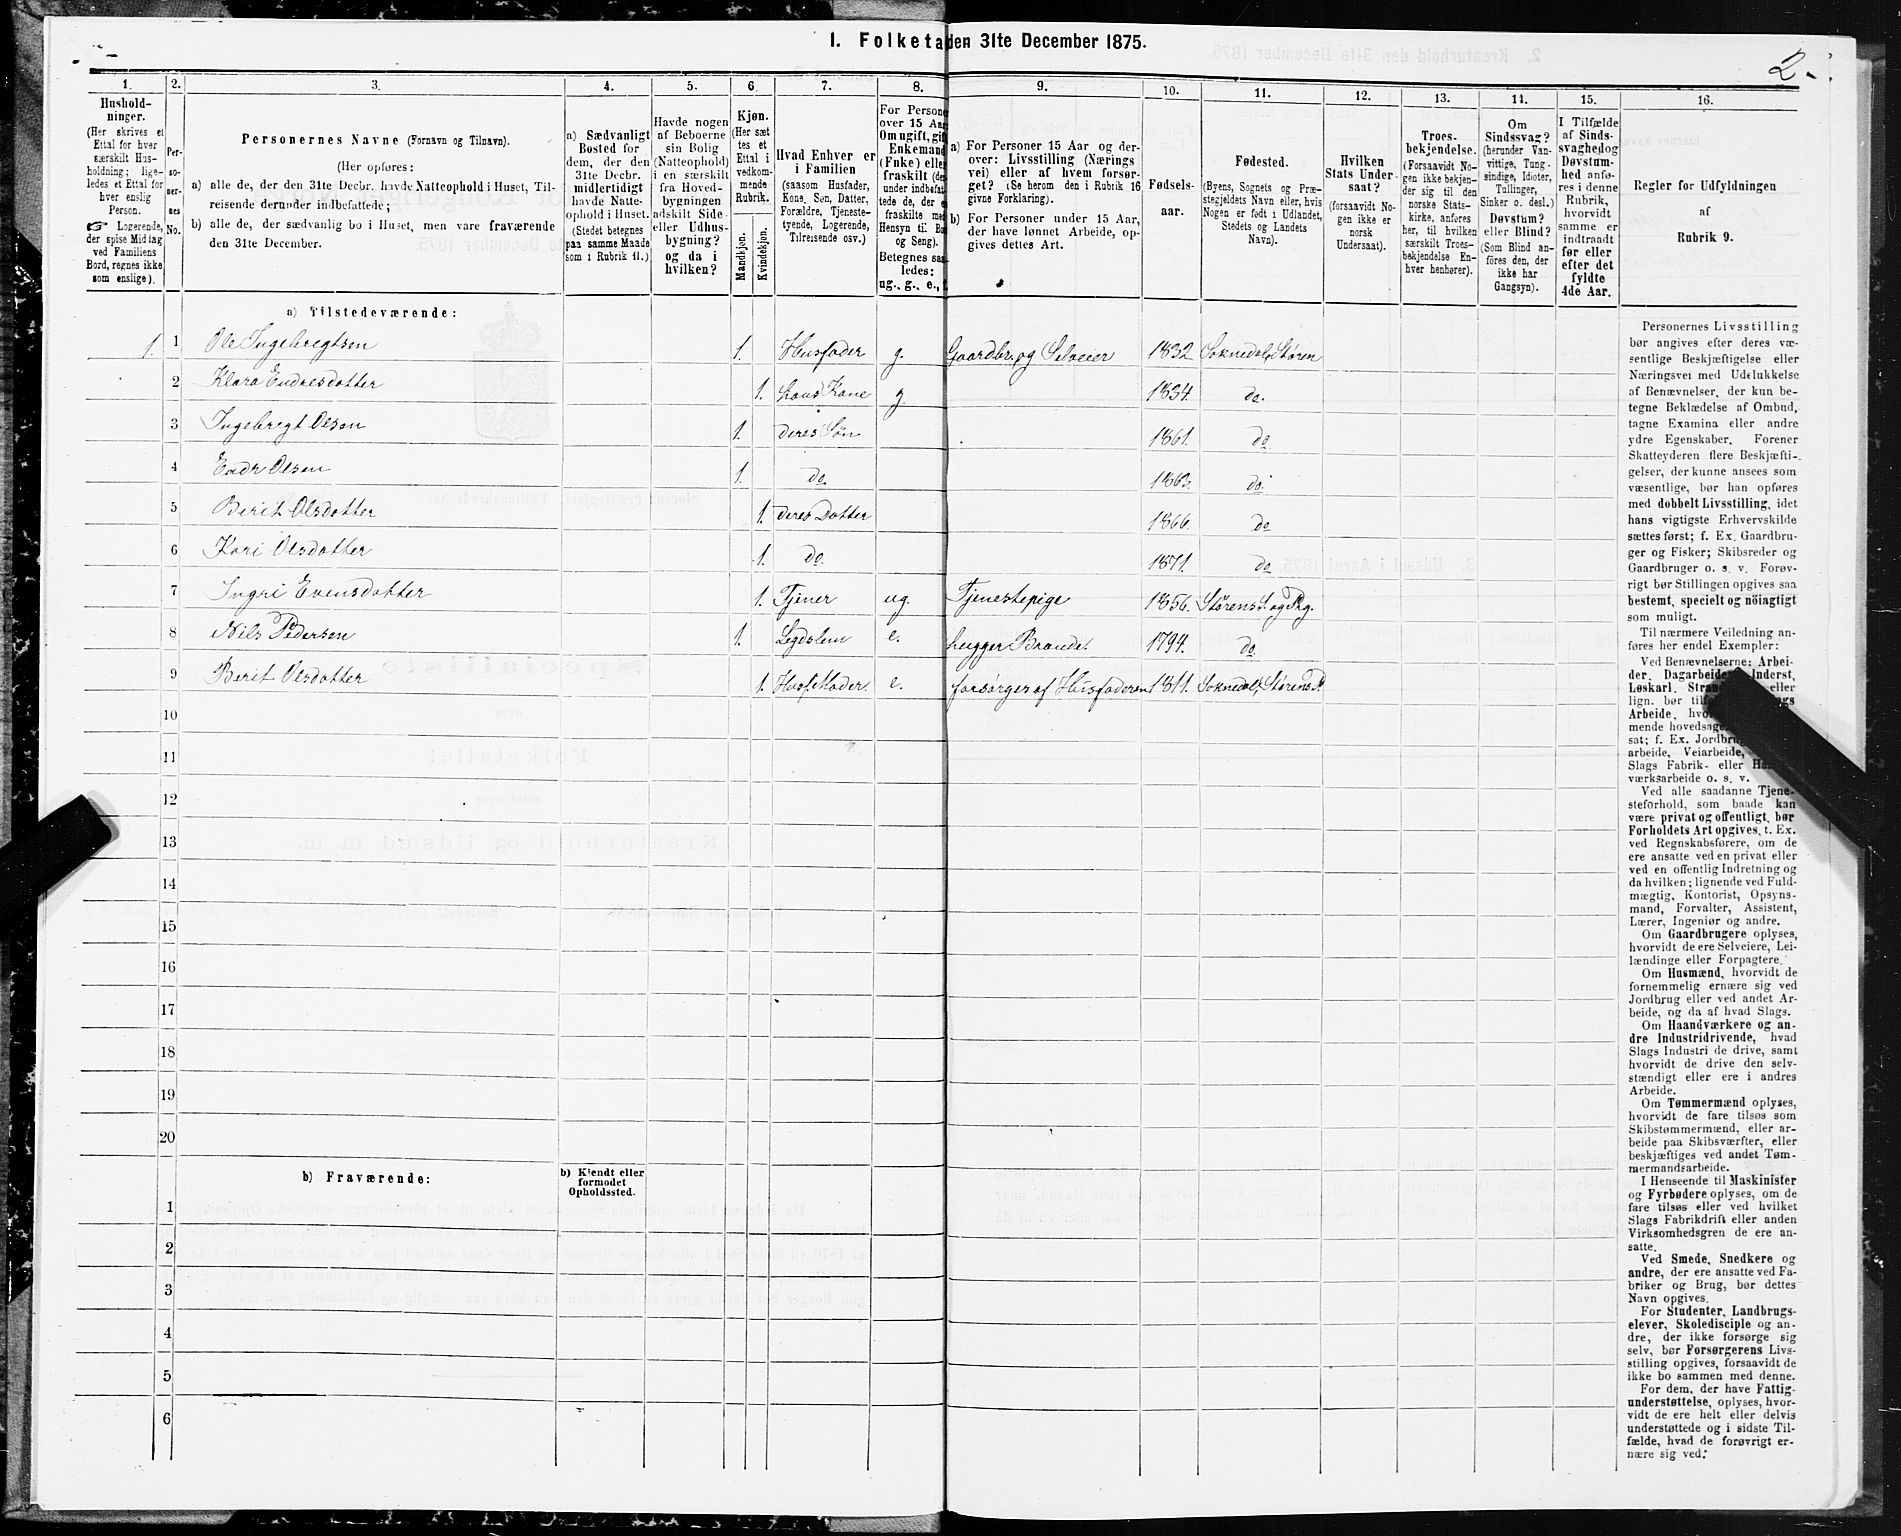 I. Folketa den 31te December 1875.
2.
1.
Hushold-
ninger.
(Her skrives et
Ettal for hver
særskilt Hus-
holdning; lige-
ledes et Ettal for
hver enslig
Person.
☞ Logerende,
der spise Middag
ved Familiens
Bord, regnes ikke
som enslige).
2.
Per-
so-
ner-
nes
No.
3.
Personernes Navne (Fornavn og Tilnavn).
(Her opføres:
a) alle de, der den 31te Decbr. havde Natteophold i Huset, Til-
reisende derunder indbefattede;
b) alle de, der sædvanlig bo i Huset, men vare fraværende
den 31te December.
4.
a) Sædvanligt
Bosted for
dem, der den
31te Decbr.
midlertidigt
havde Natte-
ophold i Huset.
(Stedet betegnes
paa samme Maade
som i Rubrik 11.)
5.
Havde nogen
af Beboerne
sin Bolig
(Natteophold)
i en særskilt
fra Hoved-
bygningen
adskilt Side-
eller Udhus-
bygning?
og da i
hvilken?
6.
Kjøn.
(Her sæt
tes et
Ettal i
vedkom-
mende
Rubrik.
Mandkjøn.
Kvindekjøn.
7.
Hvad Enhver er
i Familien
(saasom Husfader,
Kone, Søn, Datter,
Forældre, Tjeneste-
tyende, Logerende,
Tilreisende osv.)
8.
For Persone
over 15 Aar
Om ugift, gif
Enkemand
(Enke) elle
fraskilt (de
under indbefat
tede de, der e
fraskilte med
Hensyn til Bo
og Seng).
Betegnes saa
ledes:
ug., g., e., f
9.
a) For Personer 15 Aar og der-
over: Livsstilling (Nærings
vei) eller af hvem forsør-
get? (Se herom den i Rubrik 16
givne Forklaring).
b) For Personer under 15 Aar,
der have lønnet Arbeide, op-
gives dettes Art.
10.
Fødsels-
aar.
11.
Fødested.
(Byens, Sognets og Præ-
stegjeldets Navn eller, hvis
Nogen er født i Udlandet,
Stedets og Landets
Navn).
12.
Hvilken
Stats Under-
saat?
(forsaavidt No-
gen ikke er
norsk
Undersaat).
13.
Troes-
bekjendelse.
(Forsaavidt No-
gen ikke bekjen-
der sig til den
norske Stats-
kirke, anføres
her, til hvilken
særskilt Troes-
bekjendelse En-
hver henhører).
14.
Om
Sindssvag?
(herunder Van-
vittige, Tung-
sindige, Idioter,
Tullinger,
Sinker o. desl.)
Døvstum?
eller Blind?
(Som Blind an-
føres den, der
ikke har
Gangsyn).
15.
I Tilfælde
af Sinds-
svaghed og
Døvstum-
hed anfø-
res i denne
Rubrik,
hvorvidt
samme er
indtraadt
før eller
efter det
fyldte
4de Aar.
16.
Regler for Udfyldningen
af
Rubrik 9.
a) Tilstedeværende:
1. 1 Ole Ingebregtsen 1. Husfader g. Gaardbr. og Selveier 1832 Soknedal, Støren
2 Klara Endresdotter 1. hans Kone g. 1834. do.
3 Ingebregt Olsen 1. deres Søn 1861. do
4 Endr Olsen 1. do. 1863. do
5 Berit Olsdotter 1. deres Dotter 1866. do
6 Kari Olsdotter 1. do. 1871. do
7 Ingri Evensdotter 1. Tjener ug. Tjenestepige 1856. Størens S. og Prg.
8 Nils Pedersen 1. Legdslem e. hugger Brandet 1794. do.
9 Berit Olsdotter 1. Husf. Moder. e. forsørges af Husfaderen 1811. Soknedal, Størens P.
10
11
12
13
14
15
16
17
18
19
20
b) Fraværende:
b) Kjendt eller
formodet
Opholdssted.
1
2
3
4
5
6
Personernes Livsstilling
bør angives efter deres væ-
sentlige Beskjæftigelse eller
Næringsvei med Udelukkelse
af Benævnelser, der kun be-
tegne Beklædelse af Ombud,
tagne Examina eller andre
ydre Egenskaber. Forener
Skatteyderen flere Beskjæfti-
gelser, der kunne ansees som
væsentlige, bør han opføres
med dobbelt Livsstilling, idet
hans vigtigste Erhvervskilde
sættes først; f. Ex. Gaardbru-
ger og Fisker; Skibsreder og
Gaardbruger o. s. v. Forøv-
rigt bør Stillingen opgives saa
bestemt, specielt og nöiagtigt
som muligt.
Til nærmere Veiledning an-
føres her endel Exempler:
Ved Benævnelserne: Arbei-
der, Dagarbeider, Inderst,
Løskarl, Stran eller
lign. bør til ags
Arbeide, hv
mende hovedsag
sat; f. Ex. Jordbru
arbeide, Veiarbeide,
Slags Fabrik- eller
værksarbeide o. s. v.
Ved alle saadanne Tjene-
steforhold, som baade kan
være privat og offentligt, bør
Forholdets Art opgives, t. Ex.
ved Regnskabsførere, om de
ere ansatte ved en privat eller
ved en offentlig Indretning og
da hvilken; lignende ved Fuld-
mægtig, Kontorist, Opsyns-
mand, Forvalter, Assistent,
Lærer, Ingeniør og andre.
Om Gaardbrugere oplyses,
hvorvidt de ere Selveiere, Lei-
lændinge eller Forpagtere.
Om Husmænd, hvorvidt de
fornemmelig ernære sig ved
Jordbrug eller ved andet Ar-
beide, og da af hvad Slags.
Om Haandværkere og an-
dre Industridrivende, hvad
Slags Industri de drive, samt
hvorvidt de drive den selv-
stændigt eller ere i andres
Arbeide.
Om Tømmermænd oplyses,
hvorvidt de fare tilsøs som
Skibstømmermænd, eller ar-
beide paa Skibsværfter, eller
beskjæftiges ved andet Tøm-
mermandsarbeide.
I Henseende til Maskinister
og Fyrbødere oplyses, om de
fare tilsøs eller ved hvilket
Slags Fabrikdrift eller anden
Virksomhedsgren de ere an-
satte.
Ved Smede, Snedkere og
andre, der ere ansatte ved Fa-
briker og Brug, bør dettes
Navn opgives.
For Studenter, Landbrugs-
elever, Skoledisciple og an-
dre, der ikke forsørge sig
selv, bør Forsørgerens Livs-
stilling opgives, forsaavidt de
ikke bo sammen med denne.
For dem, der have Fattig-
understøttelse, oplyses, hvor-
vidt de ere helt eller delvis
understøttede og i sidste Til-
fælde, hvad de forøvrigt er-
nære sig ved.